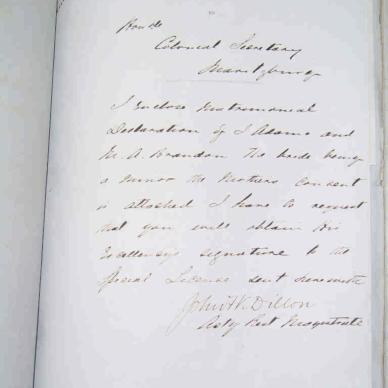 Honble
Colonial Secretary
Maritzburg
I Enclose Matrimonial
Declaration of J Adams and
M. A. Brandon The bride being
a minor the Mothers Consent
is attached I have to request
that you will obtain His
Excellency's signature to the
Special License sent herewith
John W. Dillon
Actg Rest Magistrate